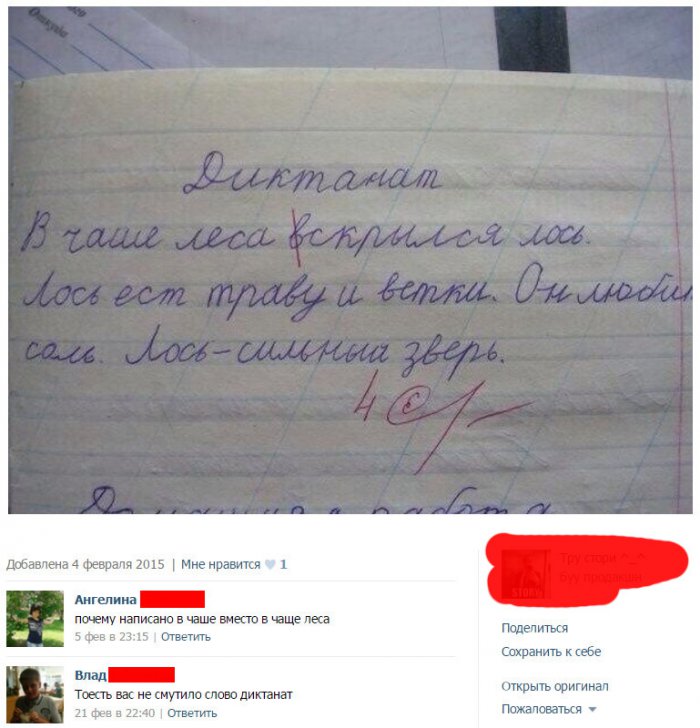 Откуда
Диктанат
В чаше леса вскрылся лось.
Лось ест траву и ветки. Он любит
соль. Лось-сильный зверь.
4
Домашняя работа
Добавлена 4 февраля 2015 | Мне нравится 1
Ангелина
почему написано в чаше вместо в чаще леса
5 фев в 23:15 | Ответить
Влад
Тоесть вас не смутило слово диктанат
21 фев в 22:40 | Ответить
Тру стори ^_^
буу продакшн
STORY
Поделиться
Сохранить к себе
Открыть оригинал
Пожаловаться